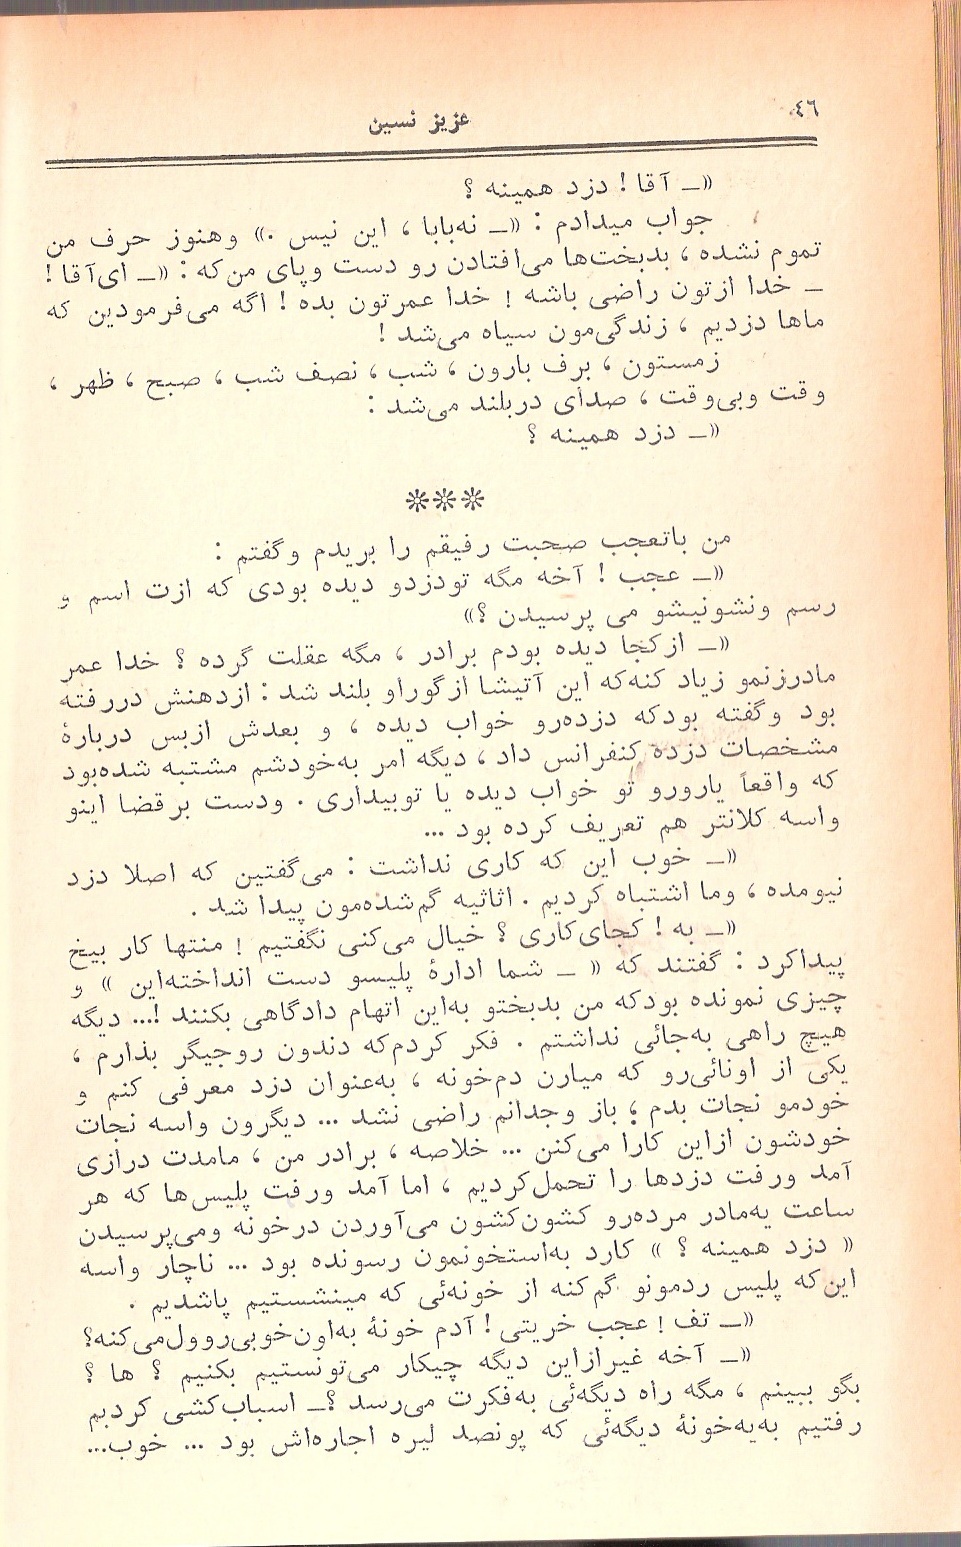 ٤٦
عزیز نسین
«ـ آقا ! دزد همینه ؟
جواب میدادم : «ـ نه‌بابا ، این نیس .» وهنوز حرف من
تموم نشده ، بدبخت‌ها می‌افتادن رو دست وپای من‌که : «ـ ای‌آقا !
ـ خدا ازتون راضی باشه ! خدا عمرتون بده ! اگه می‌فرمودین که
ماها دزدیم ، زندگی‌مون سیاه می‌شد !
زمستون ، برف بارون ، شب ، نصف شب ، صبح ، ظهر ،
وقت وبی‌وقت ، صدای دربلند می‌شد :
«ـ دزد همینه ؟
***
من باتعجب صحبت رفیقم را بریدم وگفتم :
«ـ عجب ! آخه مگه تودزدو دیده بودی که ازت اسم و
رسم ونشونیشو می پرسیدن ؟»
«ـ ازکجا دیده بودم برادر ، مگه عقلت گرده ؟ خدا عمر
مادرزنمو زیاد کنه‌که این آتیشا ازگوراو بلند شد : ازدهنش دررفته
بود وگفته بودکه دزده‌رو خواب دیده ، و بعدش ازبس دربارهٔ
مشخصات دزده کنفرانس داد ، دیگه امر به‌خودشم مشتبه شده‌بود
که واقعاً یارورو تو خواب دیده یا توبیداری . ودست برقضا اینو
واسه کلانتر هم تعریف کرده بود ...
«ـ خوب این که کاری نداشت : می‌گفتین که اصلا دزد
نیومده ، وما اشتباه کردیم . اثاثیه گم‌شده‌مون پیدا شد .
«ـ به ! کجای‌کاری ؟ خیال می‌کنی نگفتیم ! منتها کار بیخ
پیداکرد : گفتند که « ـ شما ادارهٔ پلیسو دست انداخته‌این » و
چیزی نمونده بودکه من بدبختو به‌این اتهام دادگاهی بکنند !... دیگه
هیچ راهی به‌جائی نداشتم . فکر کردم‌که دندون روجیگر بذارم ،
یکی از اونائی‌رو که میارن دم‌خونه ، به‌عنوان دزد معرفی کنم و
خودمو نجات بدم ؛ باز وجدانم راضی نشد ... دیگرون واسه نجات
خودشون ازاین کارا می‌کنن ... خلاصه ، برادر من ، مامدت درازی
آمد ورفت دزدها را تحمل‌کردیم ، اما آمد ورفت پلیس‌ها که هر
ساعت یه‌مادر مرده‌رو کشون‌کشون می‌آوردن درخونه ومی‌پرسیدن
« دزد همینه ؟ » کارد به‌استخونمون رسونده بود ... ناچار واسه
این‌که پلیس ردمونو گم‌کنه از خونه‌ئی که مینشستیم پاشدیم .
«ـ تف ! عجب خریتی ! آدم خونهٔ به‌اون‌خوبی‌روول‌می‌کنه؟
«ـ آخه غیرازاین دیگه چیکار می‌تونستیم بکنیم ؟ ها ؟
بگو ببینم ، مگه راه دیگه‌ئی به‌فکرت می‌رسد ؟ـ اسباب‌کشی کردیم
رفتیم به‌یه‌خونهٔ دیگه‌ئی که پونصد لیره اجاره‌اش بود ... خوب...